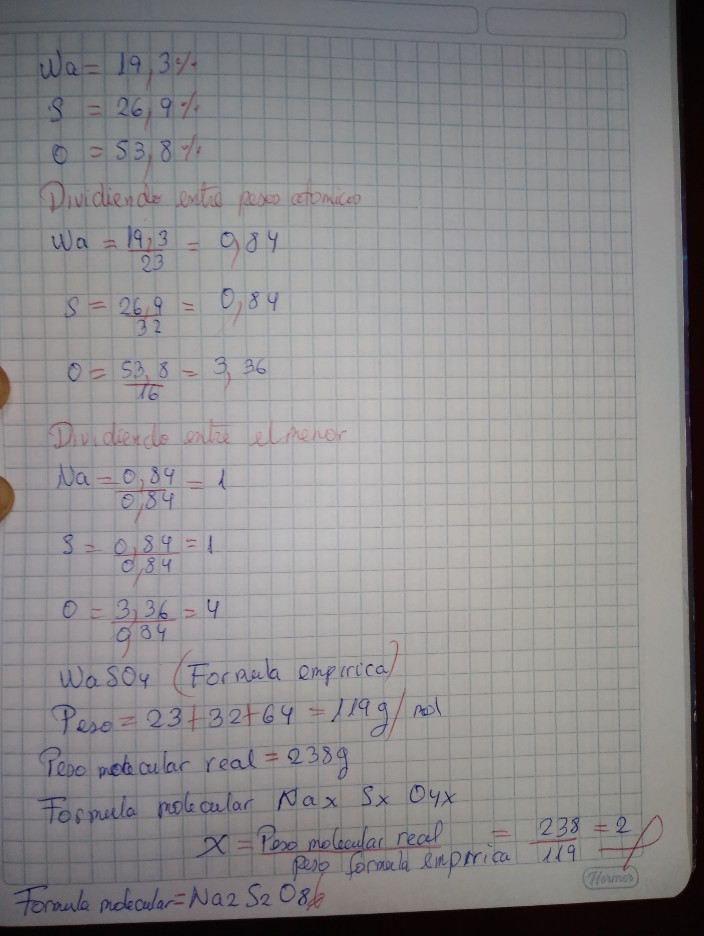 Wa = 19,3%
S = 26,9%
O = 53,8%
Dividiendo entre pesos atomicos
Wa = 19,3/23 = 0,84
S = 26,9/32 = 0,84
O = 53,8/16 = 3,36
Dividiendo entre el menor
Na = 0,84/0,84 = 1
S = 0,84/0,84 = 1
O = 3,36/0,84 = 4
WaSO4 (Formula empirica)
Peso = 23+32+64 = 119g/mol
Peso molecular real = 238g
Formula molecular Nax Sx O4x
X = Peso molecular real/peso formula empirica = 238/119 = 2
Hermes
Formula molecular = Na2 S2 O8